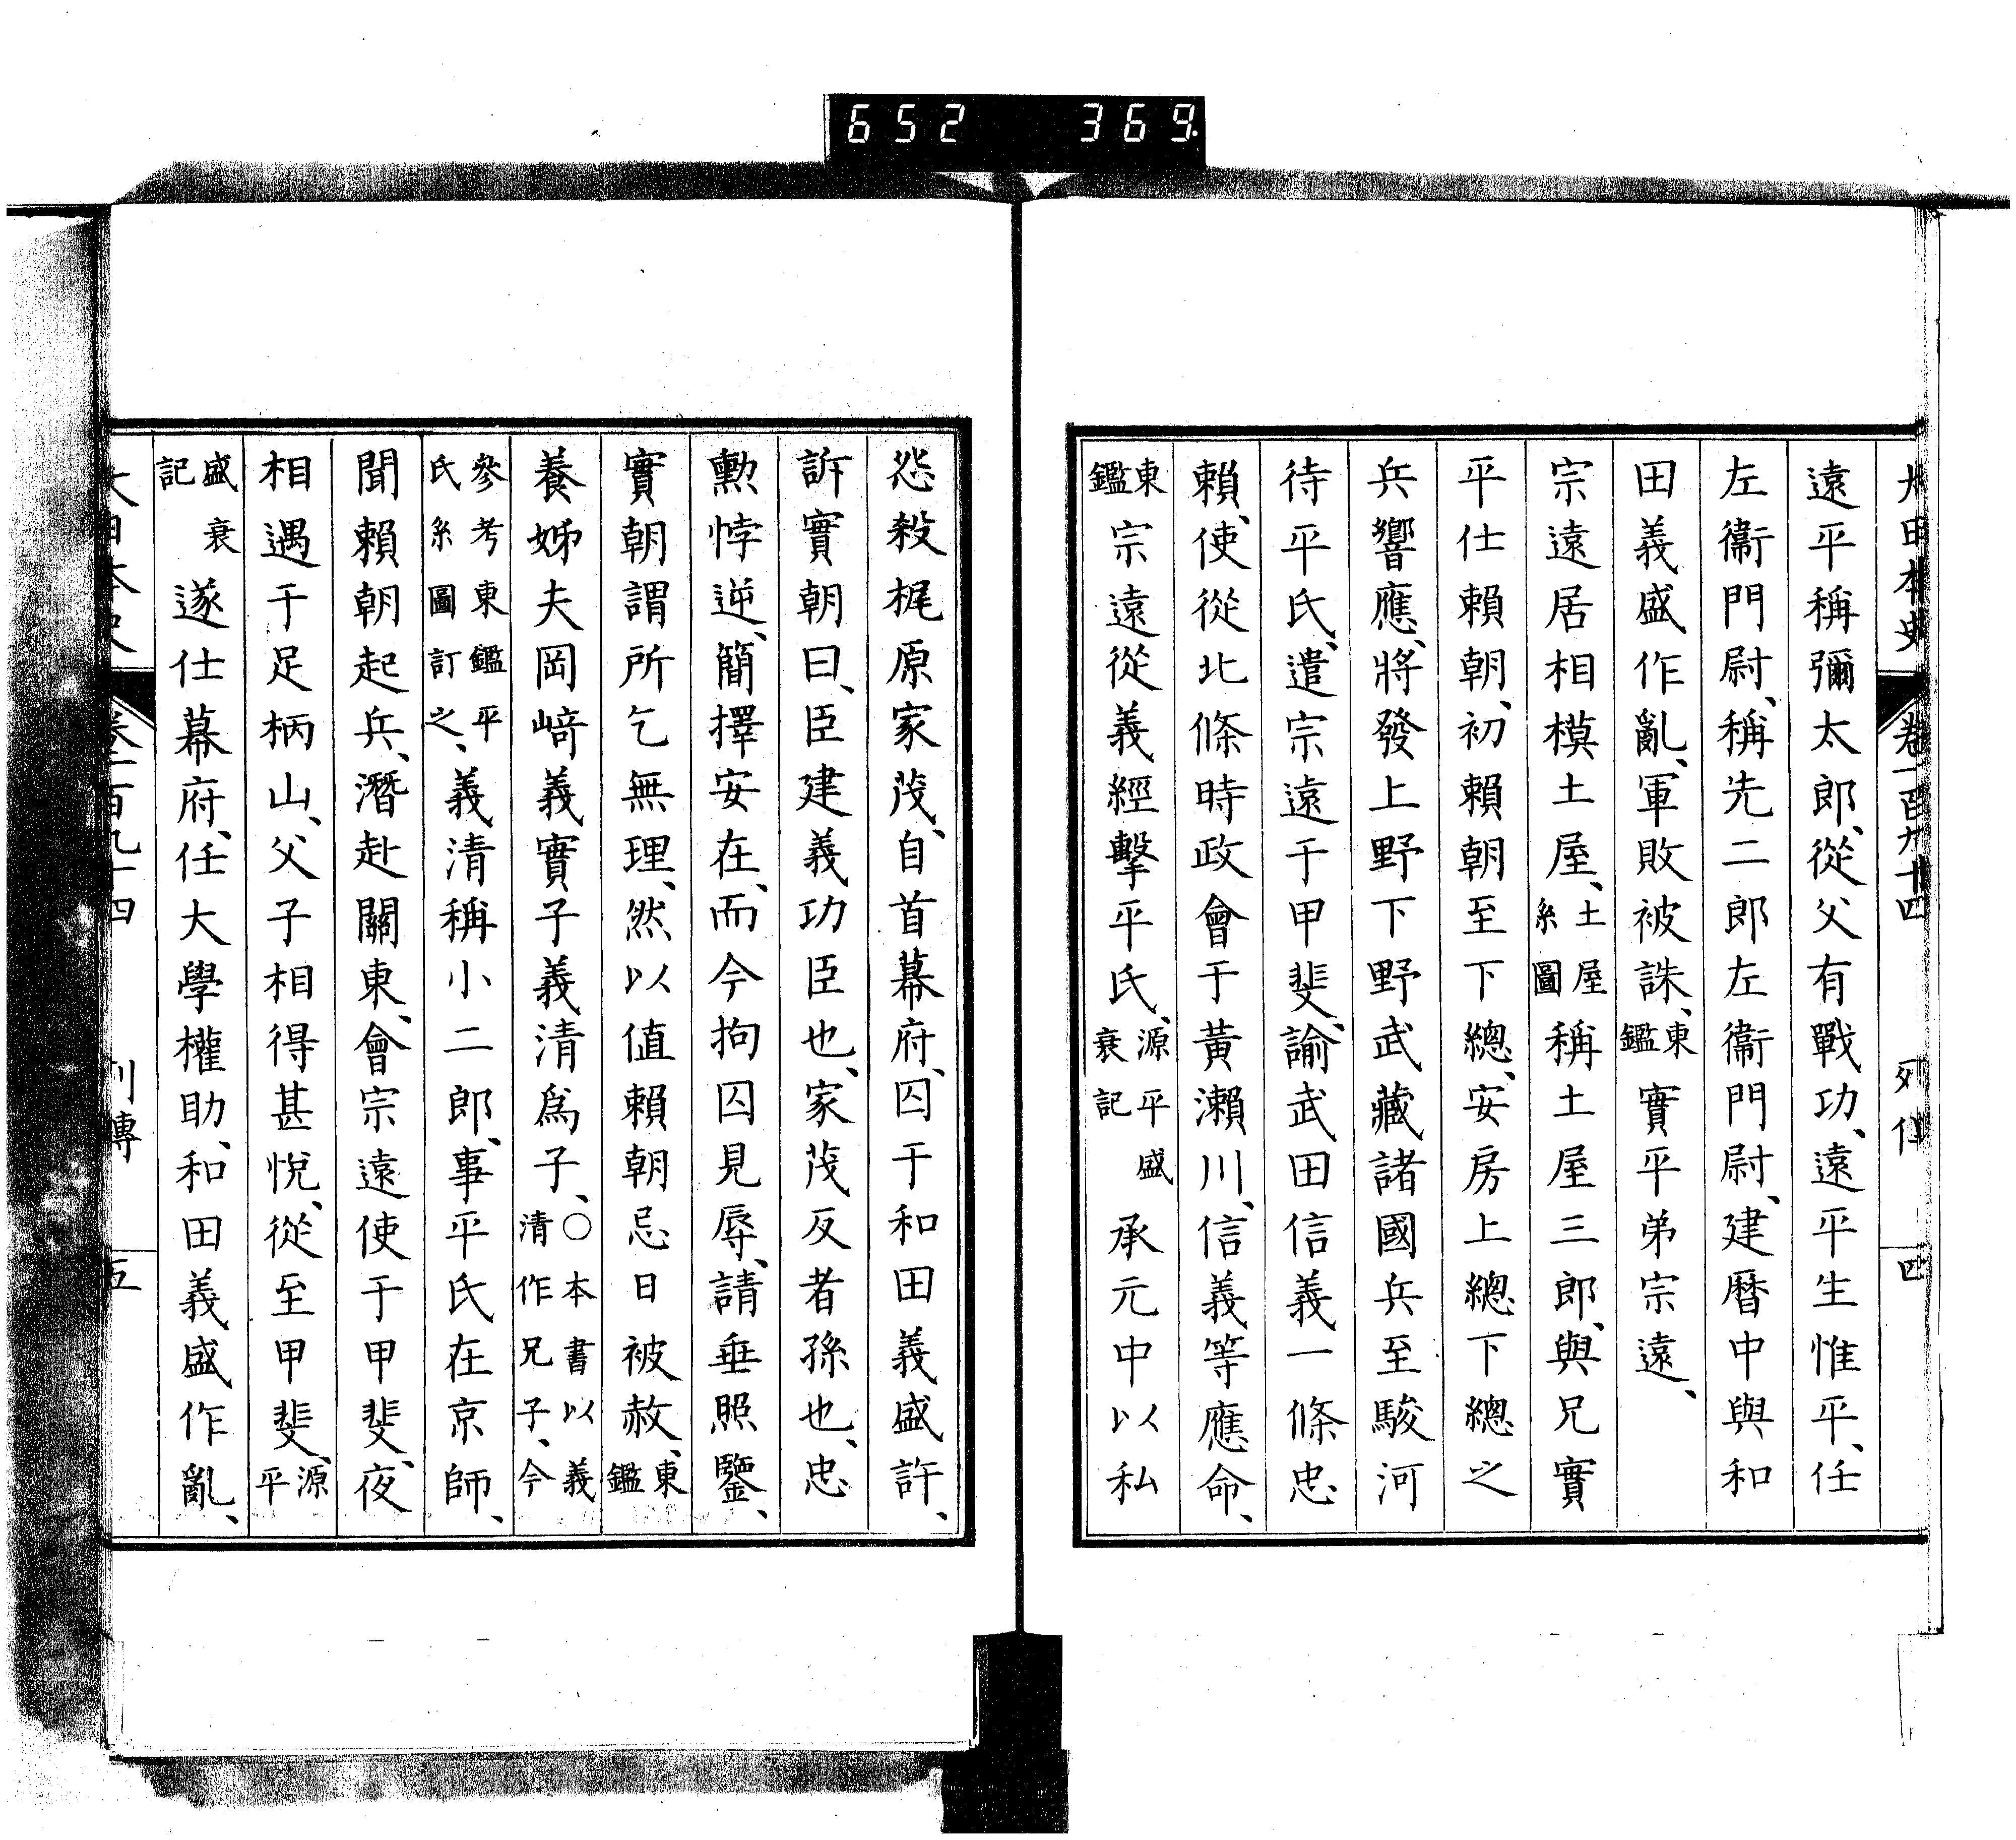 652 369
大日本史 卷一百九十四 列傳 四
遠平稱彌太郎、從父有戰功、遠平生惟平、任
左衞門尉、稱先二郎左衞門尉、建曆中與和
田義盛作亂、軍敗被誅、東鑑實平弟宗遠、
宗遠居相模土屋、土屋系圖稱土屋三郎、與兄實
平仕賴朝、初賴朝至下總、安房上總下總之
兵響應、將發上野下野武藏諸國兵至駿河
待平氏、遣宗遠于甲斐、諭武田信義一條忠
賴、使從北條時政會于黃瀨川、信義等應命、
東鑑宗遠從義經擊平氏、源平盛衰記承元中以私
怨殺梶原家茂、自首幕府、囚于和田義盛許、
訴實朝曰、臣建義功臣也、家茂反者孫也、忠
勲悖逆、簡擇安在、而今拘囚見辱、請垂照鑒、
實朝謂所乞無理、然以値賴朝忌日被赦、東鑑
養姊夫岡﨑義實子義清爲子、〇本書以義清作兄子、今
參考東鑑平氏系圖訂之、義清稱小二郎、事平氏在京師、
聞賴朝起兵、潛赴關東、會宗遠使于甲斐、夜
相遇于足柄山、父子相得甚悅、從至甲斐、源平
盛衰記遂仕幕府、任大學權助、和田義盛作亂、
大日本史 卷一百九十四 列傳 五